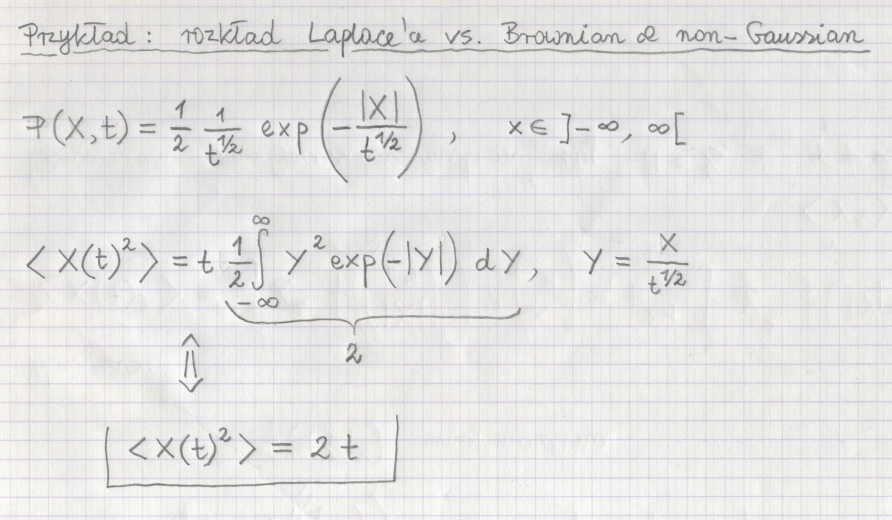 Przykład: rozkład Laplace'a vs. Brownian & non-Gaussian
P(X,t) = 1/2 1/t^1/2 exp(-|X|/t^1/2), x ∈ ]-∞, ∞[
<X(t)²> = t 1/2 ∫_{-∞}^{∞} Y² exp(-|Y|) dY, Y = X/t^1/2
2
⇕
<X(t)²> = 2t